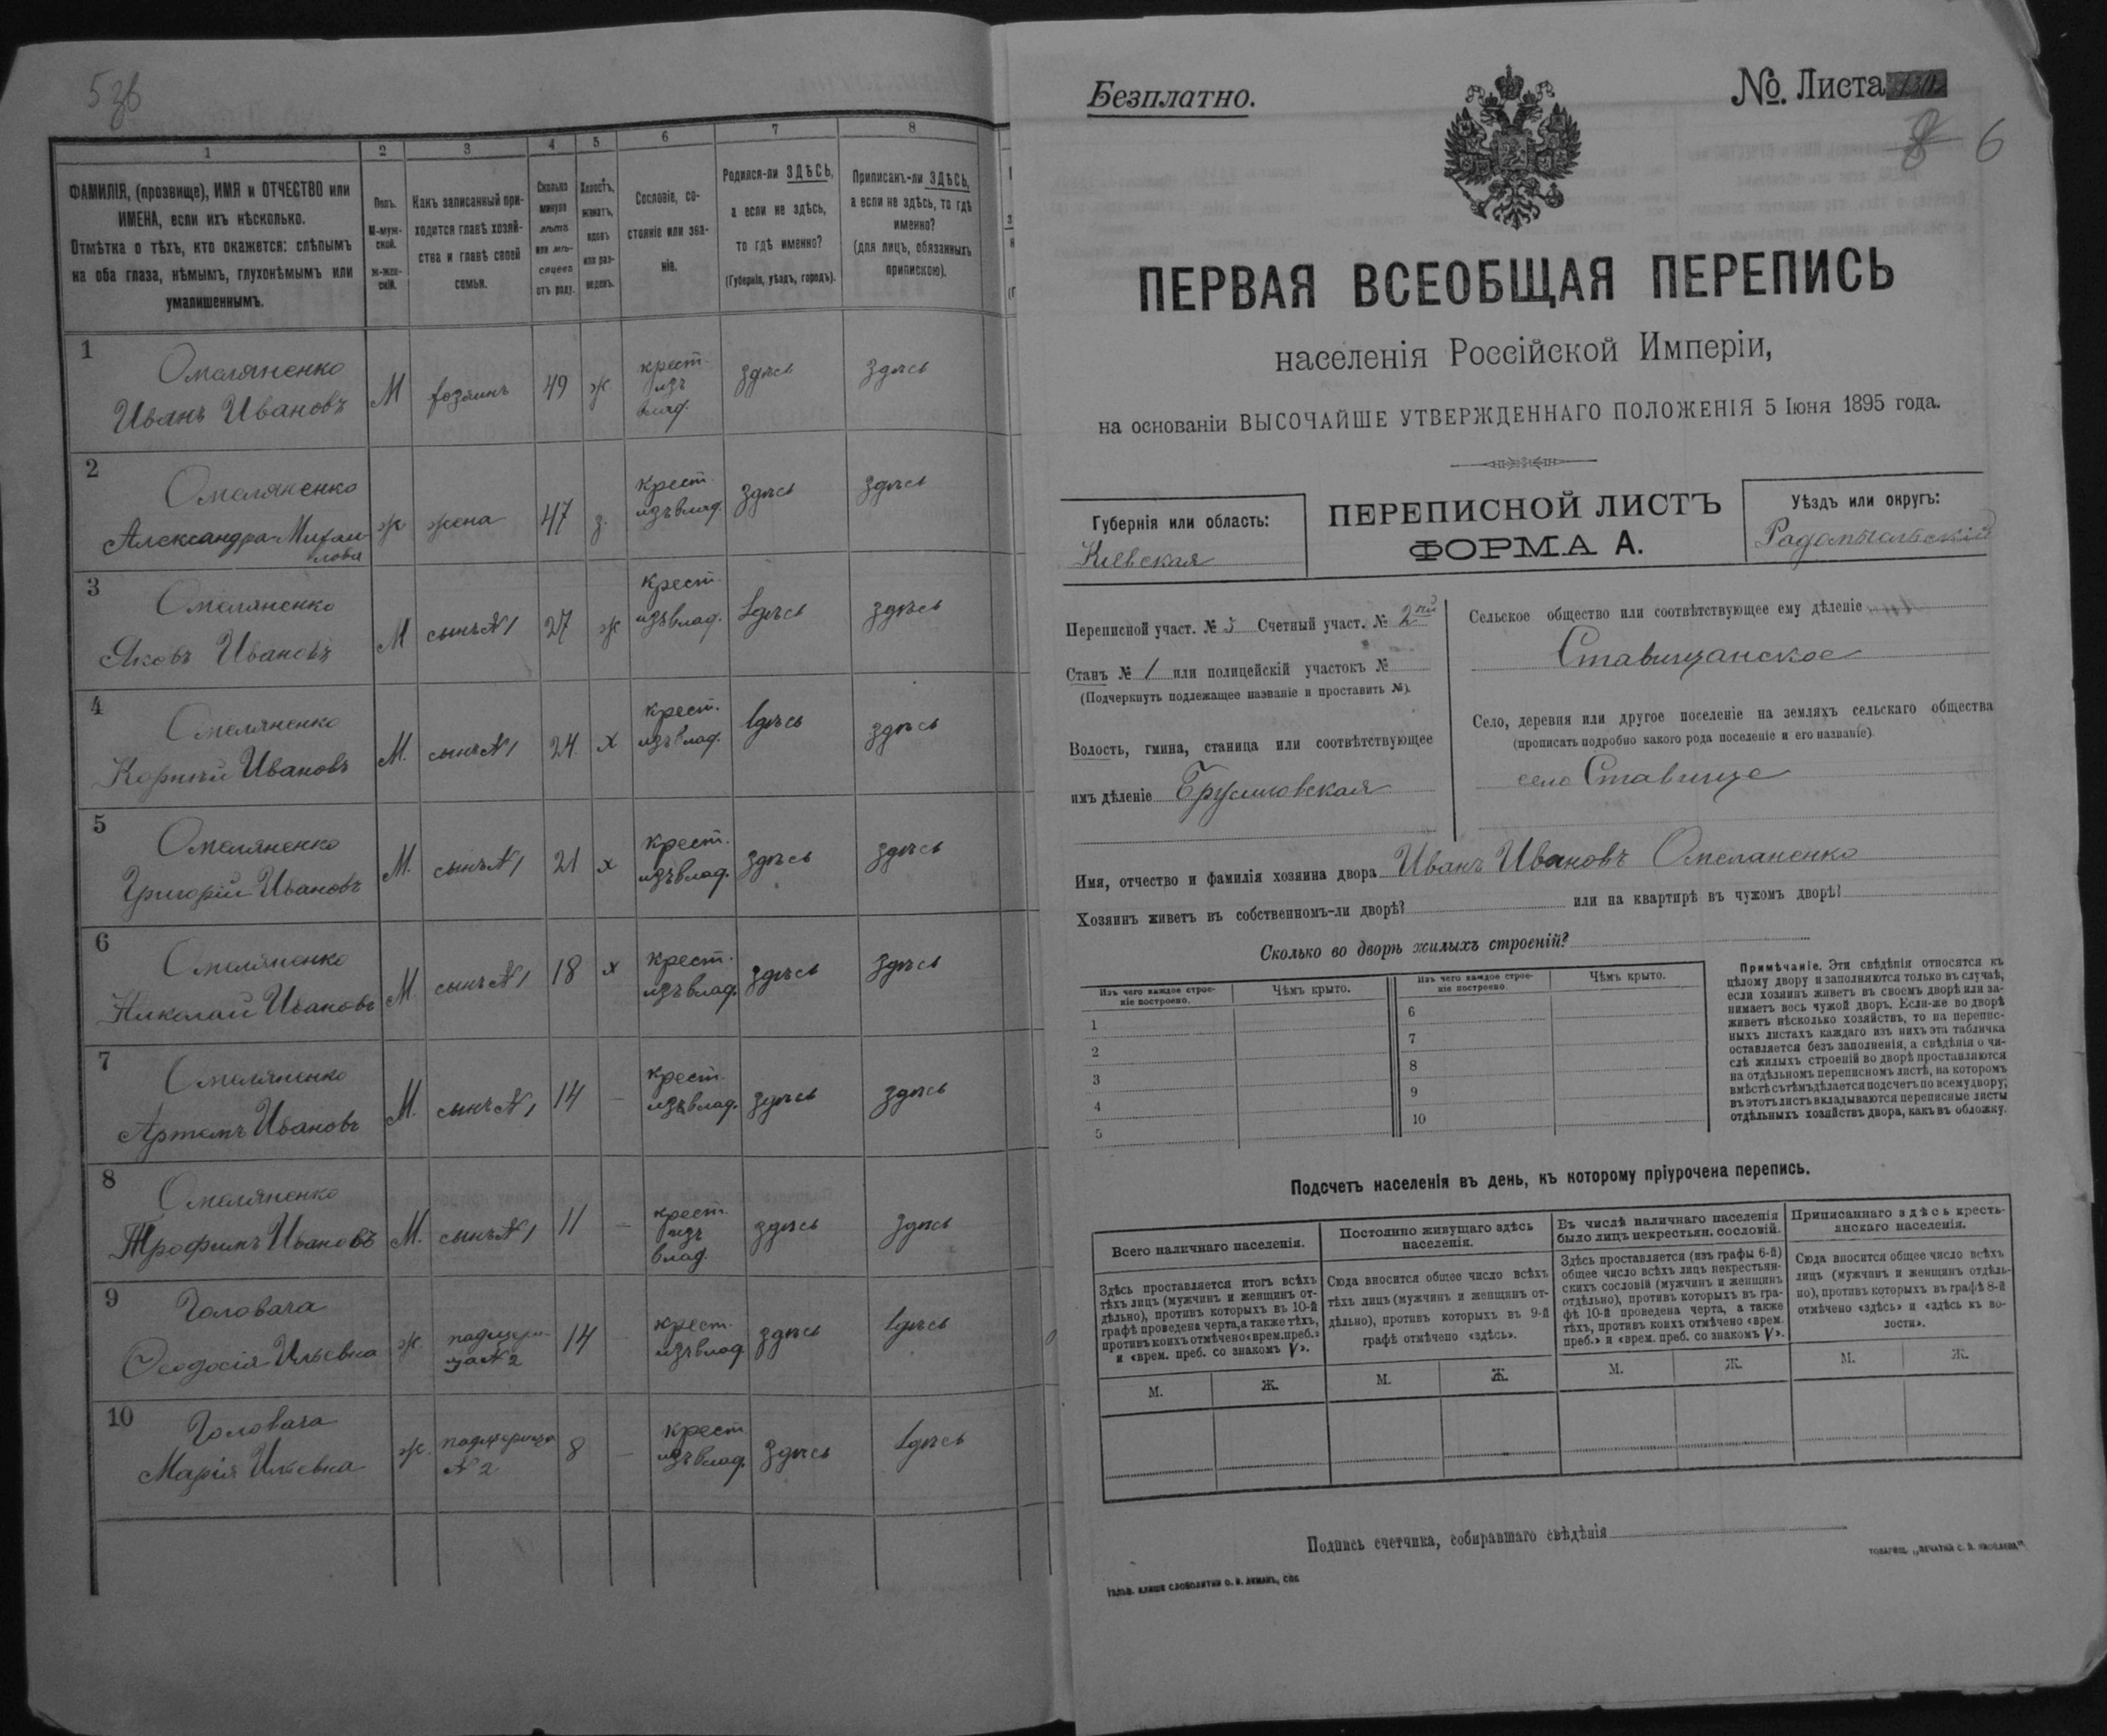 536
1
2
3
4
5
6
7
8
ФАМИЛІЯ, (прозвище), ИМЯ и ОТЧЕСТВО или
ИМЕНА, если ихъ нѣсколько.
Отмѣтка о тѣхъ, кто окажется: слѣпымъ
на оба глаза, нѣмымъ, глухонѣмымъ или
умалишеннымъ.
Полъ.
М-муж-
ской.
ж-жен-
скій.
Какъ записанный при-
ходится главѣ хозяй-
ства и главѣ своей
семьи.
Сколько
минуло
лѣтъ
или мѣ-
сяцевъ
отъ роду.
Холостъ,
женатъ,
вдовъ
или раз-
веденъ.
Сословіе, со-
стояніе или зва-
ніе.
Родился-ли ЗДѢСЬ,
а если не здѣсь,
то гдѣ именно?
(Губернія, уѣздъ, городъ).
Приписанъ-ли ЗДѢСЬ,
а если не здѣсь, то гдѣ
именно?
(для лицъ, обязанныхъ
припискою).
1
Омеляненко
Иванъ Ивановъ
М
хозяинъ
49
ж
крест.
изъ
влад.
здѣсь
здѣсь
2
Омеляненко
Александра Михаи
лова
ж
жена
47
з.
крест.
изъ влад.
здѣсь
здѣсь
3
Омеляненко
Яковъ Ивановъ
М
сынъ №1
27
ж
крест.
изъ влад.
здѣсь
здѣсь
4
Омеляненко
Корнѣй Ивановъ
М.
сынъ №1
24
х
крест.
изъ влад.
здѣсь
здѣсь
5
Омеляненко
Григорій Ивановъ
М.
сынъ №1
21
х
крест.
изъ влад.
здѣсь
здѣсь
6
Омеляненко
Николай Ивановъ
М
сынъ №1
18
х
крест.
изъ влад.
здѣсь
здѣсь
7
Омеляненко
Артемъ Ивановъ
М.
сынъ №1
14
—
крест.
изъ влад.
здѣсь
здѣсь
8
Омеляненко
Трофимъ Ивановъ
М.
сынъ №1
11
—
крест.
изъ
влад.
здѣсь
здѣсь
9
Головача
Ѳеодосія Ильевна
ж.
падчери
ца №2
14
—
крест.
изъ влад
здѣсь
здѣсь
10
Головача
Марія Ильевна
ж.
падчерица
№2
8
—
крест
изъ влад.
здѣсь
здѣсь
Безплатно.
№. Листа
8 6
ПЕРВАЯ ВСЕОБЩАЯ ПЕРЕПИСЬ
населенія Россійской Имперіи,
на основаніи ВЫСОЧАЙШЕ УТВЕРЖДЕННАГО ПОЛОЖЕНІЯ 5 Іюня 1895 года.
Губернія или область:
Кіевская
ПЕРЕПИСНОЙ ЛИСТЪ
ФОРМА А.
Уѣздъ или округъ:
Радомысльскій
Переписной участ. № 5 Счетный участ. № 2ой
Станъ № 1 или полицейскій участокъ №
(Подчеркнуть подлежащее названіе и проставить №).
Волость, гмина, станица или соотвѣтствующее
имъ дѣленіе Брусиловская
Сельское общество или соотвѣтствующее ему дѣленіе
Ставищанское
Село, деревня или другое поселеніе на земляхъ сельскаго общества
(прописать подробно какого рода поселеніе и его названіе)
село Ставище
Имя, отчество и фамилія хозяина двора Иванъ Ивановъ Омеляненко
Хозяинъ живетъ въ собственномъ-ли дворѣ? или на квартирѣ въ чужомъ дворѣ?
Сколько во дворѣ жилыхъ строеній?
Изъ чего каждое строе-
ніе построено.
Чѣмъ крыто.
Изъ чего каждое строе-
ніе построено.
Чѣмъ крыто.
1
2
3
4
5
6
7
8
9
10
Примѣчаніе. Эти свѣдѣнія относятся къ
цѣлому двору и заполняются только въ случаѣ,
если хозяинъ живетъ въ своемъ дворѣ или за-
нимаетъ весь чужой дворъ. Если-же во дворѣ
живетъ нѣсколько хозяйствъ, то на перепис-
ныхъ листахъ каждаго изъ нихъ эта табличка
оставляется безъ заполненія, а свѣдѣнія о чи-
слѣ жилыхъ строеній во дворѣ проставляются
на отдѣльномъ переписномъ листѣ, на которомъ
вмѣстѣ съ тѣмъ дѣлается подсчетъ по всему двору;
въ этотъ листъ вкладываются переписные листы
отдѣльныхъ хозяйствъ двора, какъ въ обложку.
Подсчетъ населенія въ день, къ которому пріурочена перепись.
Всего наличнаго населенія.
Постоянно живущаго здѣсь
населенія.
Въ числѣ наличнаго населенія
было лицъ некрестьян. сословій.
Приписаннаго здѣсь кресть-
янскаго населенія.
Здѣсь проставляется итогъ всѣхъ
тѣхъ лицъ (мужчинъ и женщинъ от-
дѣльно), противъ которыхъ въ 10-й
графѣ проведена черта, а также тѣхъ,
противъ коихъ отмѣчено «врем. преб.»
и «врем. преб. со знакомъ V».
Сюда вносится общее число всѣхъ
тѣхъ лицъ (мужчинъ и женщинъ от-
дѣльно), противъ которыхъ въ 9-й
графѣ отмѣчено «здѣсь».
Здѣсь проставляется (изъ графы 6-й)
общее число всѣхъ лицъ некрестьян-
скихъ сословій (мужчинъ и женщинъ
отдѣльно), противъ которыхъ въ гра-
фѣ 10-й проведена черта, а также
тѣхъ, противъ коихъ отмѣчено «врем.
преб.» и «врем. преб. со знакомъ V».
Сюда вносится общее число всѣхъ
лицъ (мужчинъ и женщинъ отдѣль-
но), противъ которыхъ въ графѣ 8-й
отмѣчено «здѣсь» и «здѣсь къ во-
лости».
М.
Ж.
М.
Ж.
М.
Ж.
М.
Ж.
Подпись счетчика, собиравшаго свѣдѣнія
Гальв. клише словолитни О. И. Леманъ, СПБ
Товарищ. „Печатня С. П. Яковлева“.